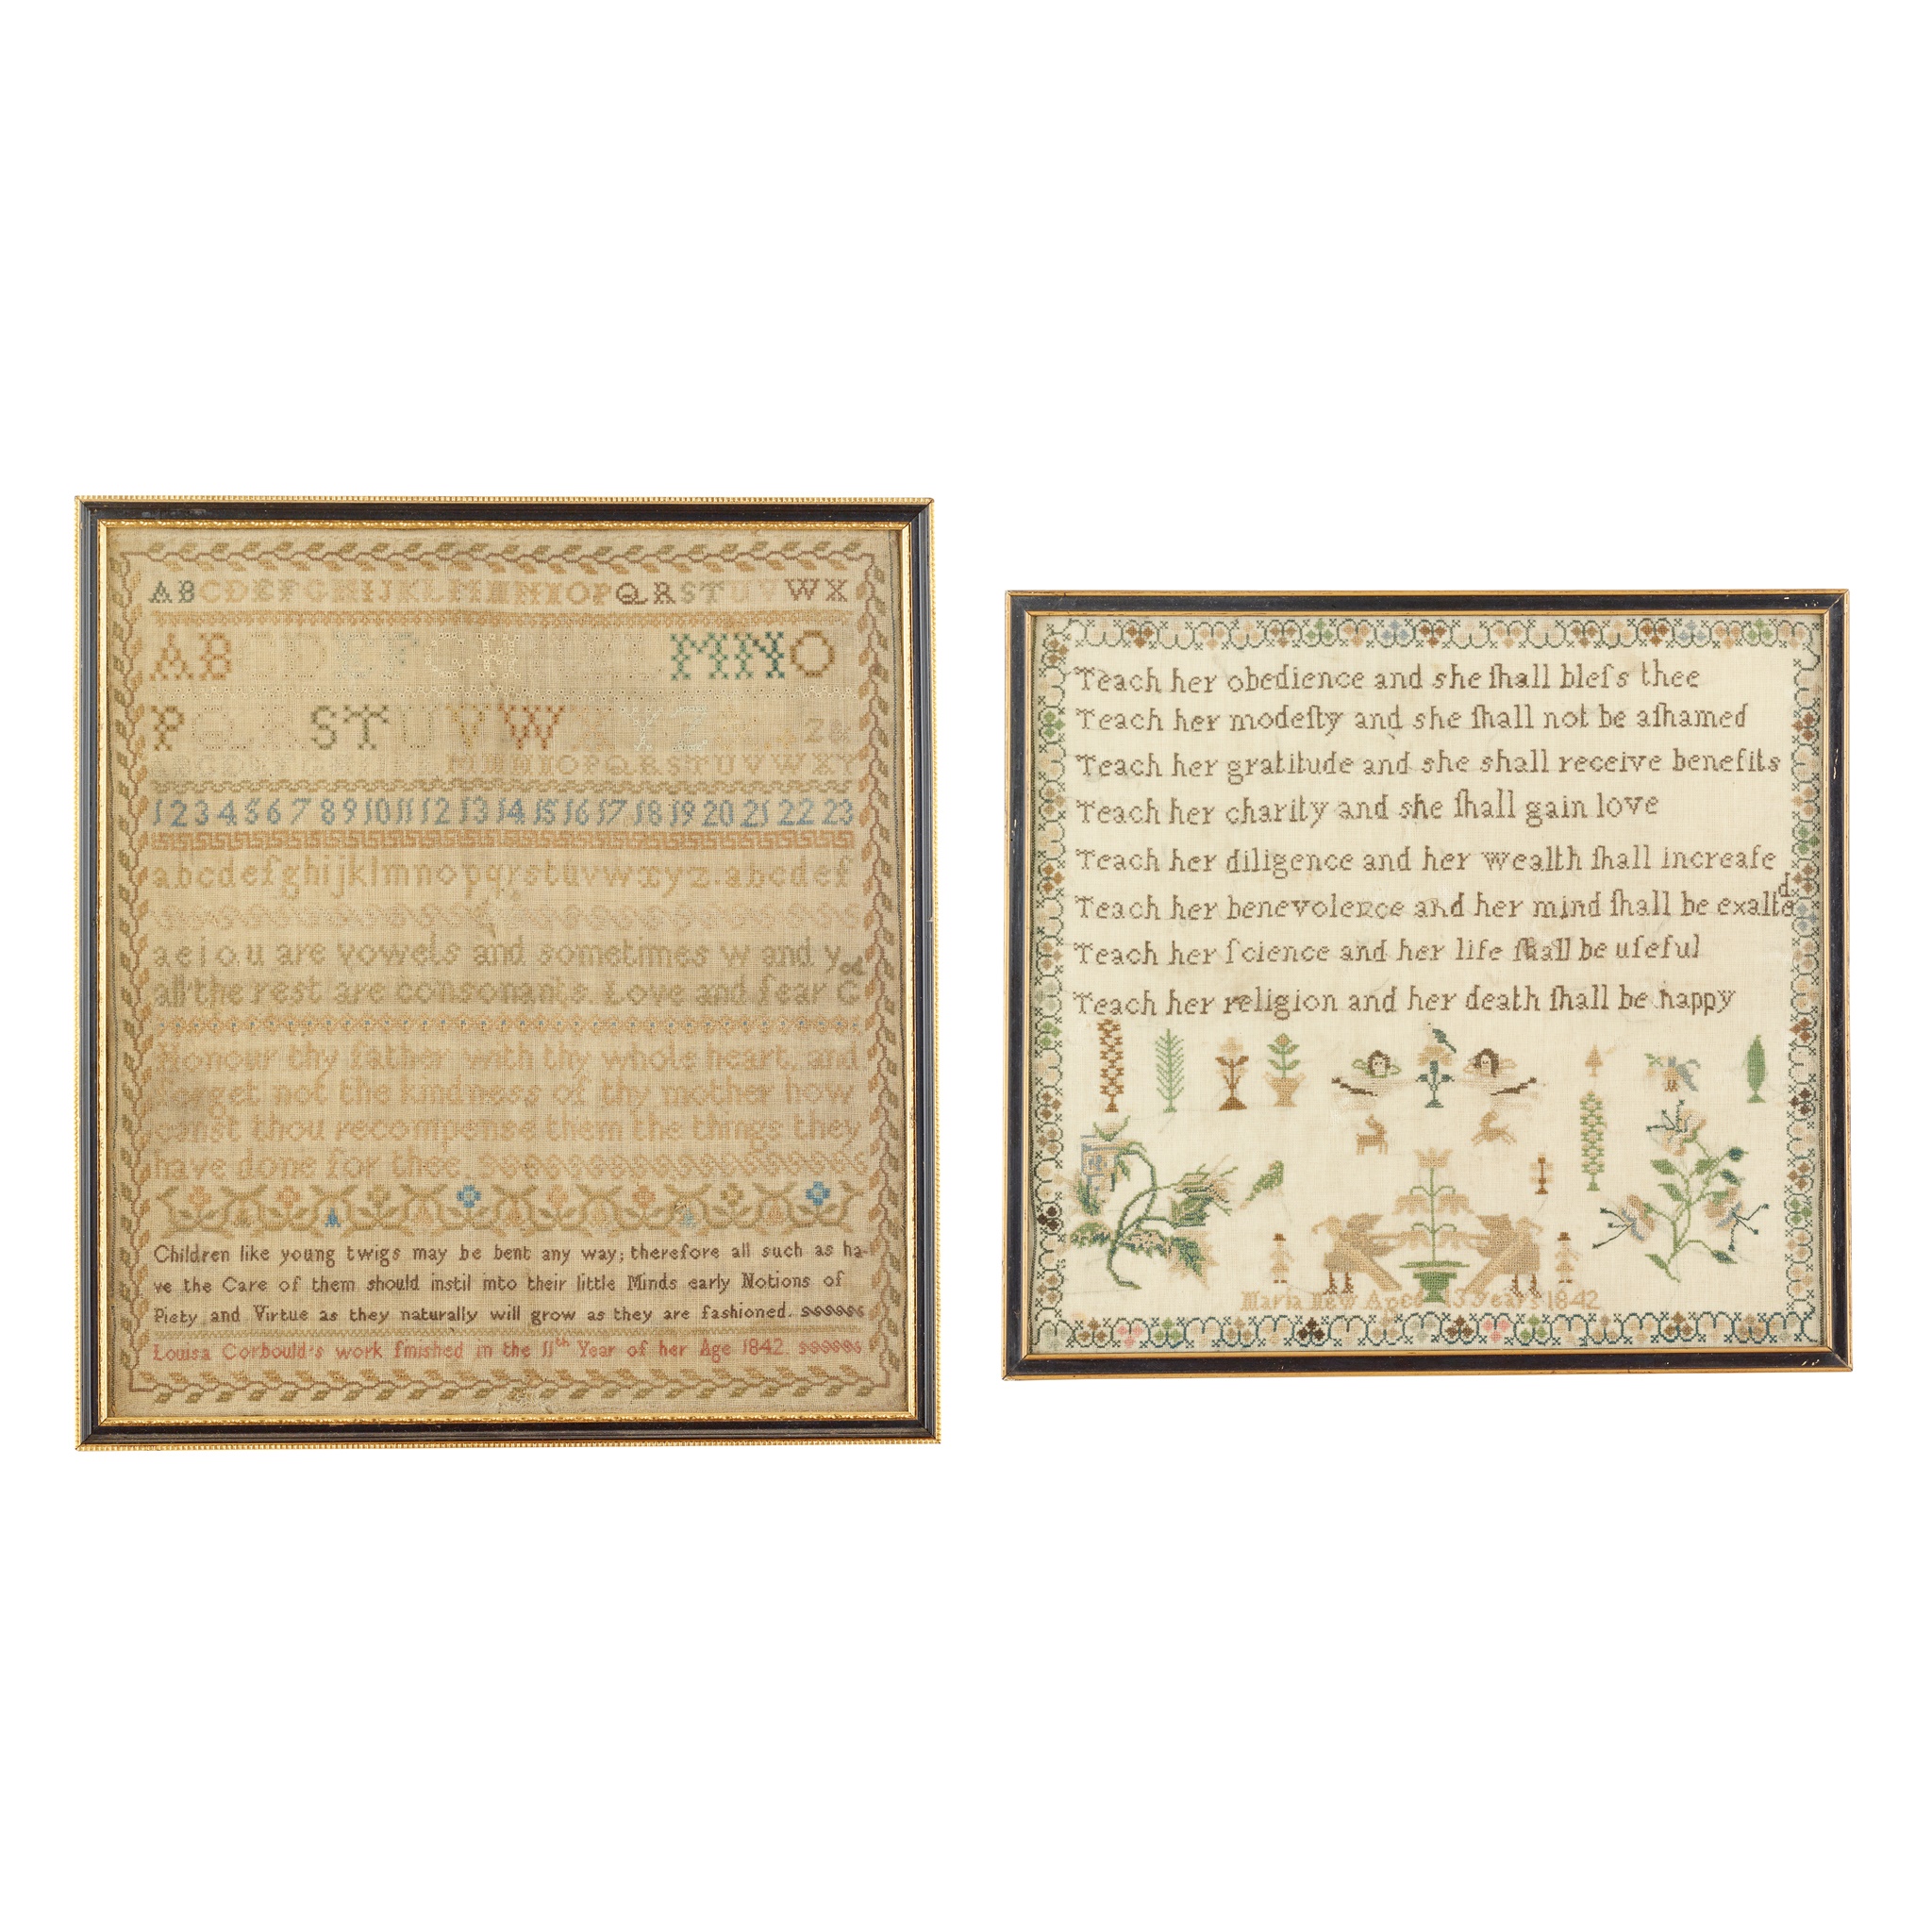 A B C D E F G H I J K L M N O P Q R S T U V W X
A B D E F G H M N O
P Q R S T U V W X Y Z Z &
M N O P Q R S T U V W X Y
1 2 3 4 5 6 7 8 9 10 11 12 13 14 15 16 17 18 19 20 21 22 23
a b c d e f g h i j k l m n o p q r s t u v w x y z . a b c d e f
a e i o u are vowels and sometimes w and y
all the rest are consonants. Love and fear God
Honour thy father with thy whole heart, and
forget not the kindness of thy mother how
canst thou recompense them the things they
have done for thee
Children like young twigs may be bent any way; therefore all such as ha-
ve the Care of them should instil into their little Minds early Notions of
Piety and Virtue as they naturally will grow as they are fashioned.
Louisa Corbould's work finished in the 11th Year of her Age 1842.
Teach her obedience and she ſhall bleſs thee
Teach her modeſty and she ſhall not be aſhamed
Teach her gratitude and she shall receive benefits
Teach her charity and she ſhall gain love
Teach her diligence and her wealth ſhall increaſe
Teach her benevolence and her mind ſhall be exalted
Teach her ſcience and her life ſhall be uſeful
Teach her religion and her death ſhall be happy
Maria New Aged 13 Years 1842